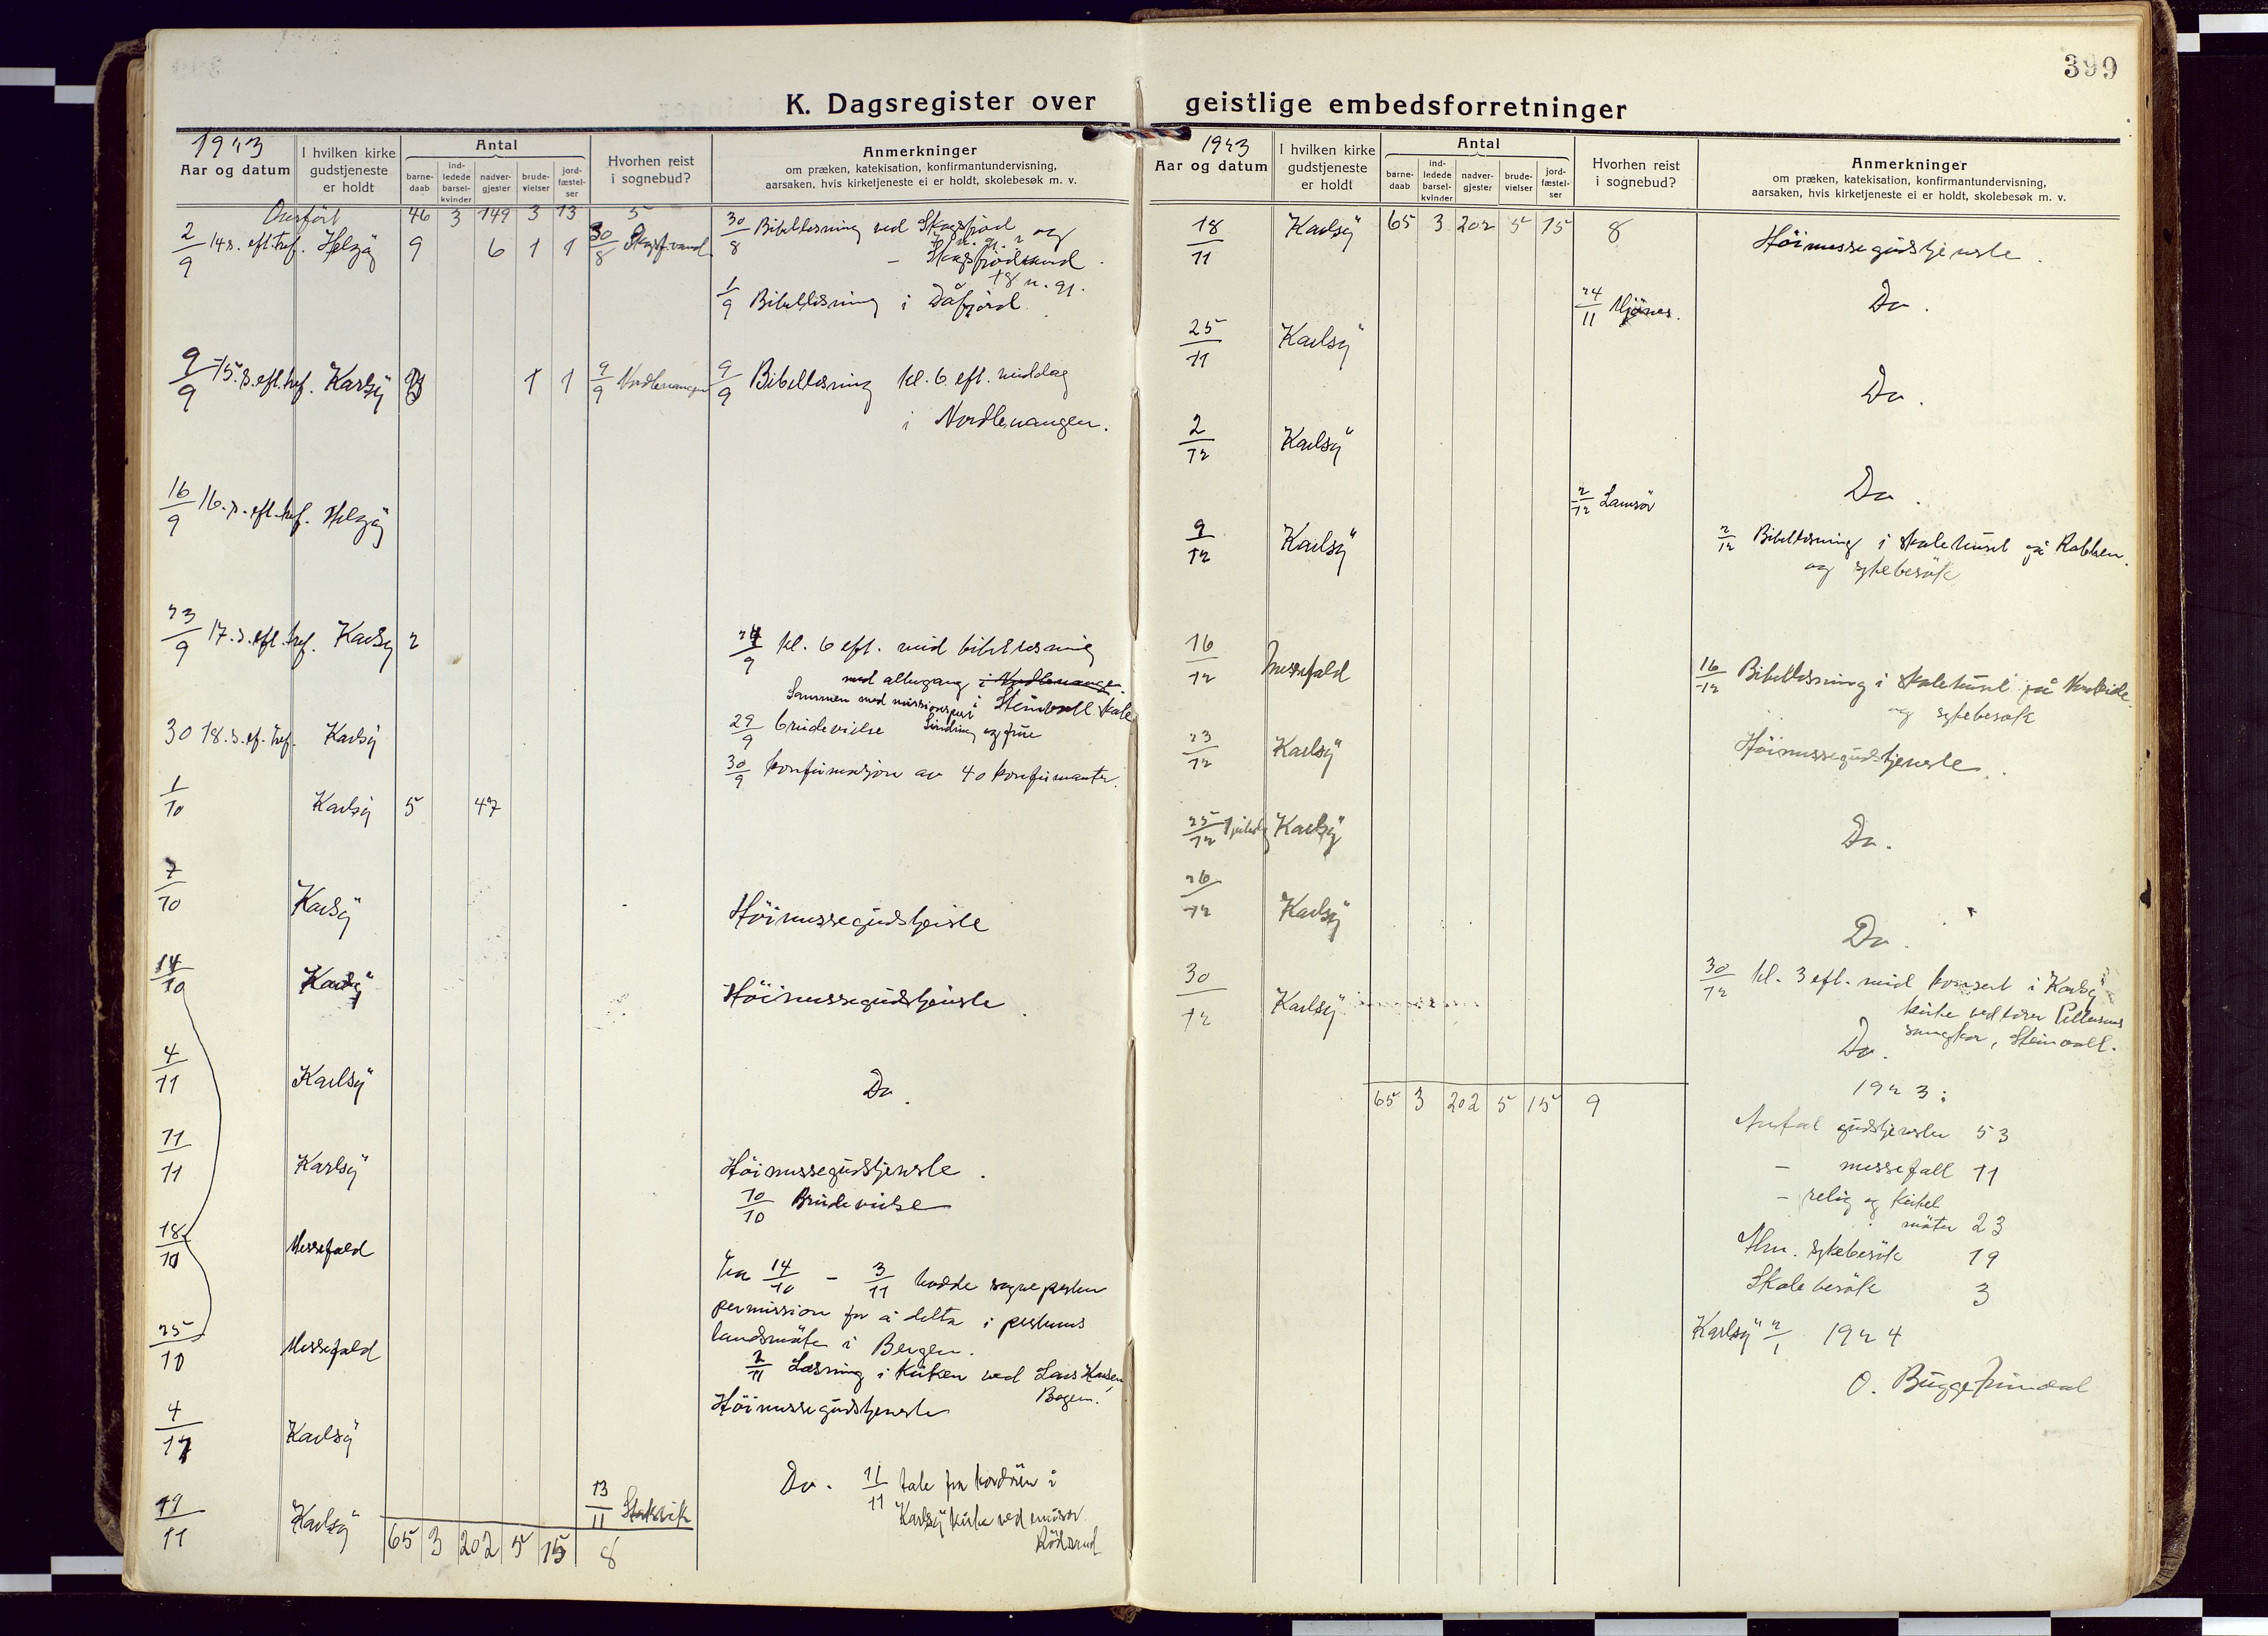 399
K. Dagsregister over geistlige embedsforretninger
1923
Aar og datum
I hvilken kirke
gudstjeneste
er holdt
Antal
barne-
daab
ind-
ledede
barsel-
kvinder
nadver-
gjester
brude-
vielser
jord-
fæstel-
ser
Hvorhen reist
i sognebud?
Anmerkninger
om præken, katekisation, konfirmantundervisning,
aarsaken, hvis kirketjeneste ei er holdt, skolebesøk m. v.
Overført 46 3 149 3 13 5
2/9 14 s. eft. tref. Helgøy 9 6 1 1 30/8
30/8 Bibellesning ved Skogsfjord og
1/9 Bibellesning i Dåfjord.
9/9 15. s. eft. tref. Karlsöy 1 1 9/9 Nordlenangen
9/9 Bibellesning kl. 6 eft. middag
i Nordlenangen.
16/9 16. s. eft. tref. Helgöy
23/9 17. s. eft. tref. Karlsöy 2
24/9 kl. 6 eft. mid bibellesning
med altergang i Nordlenangen.
Sammen med
29/9 brudevielse
30/9 konfirmasjon av 40 konfirmanter.
30 18. s. ef. tref. Karlsöy
1/10 Karlsöy 5 47
7/10 Karlsöy Höimessegudstjeneste
14/10 Karlsöy Höimessegudstjeneste
4/11 Karlsöy Do.
11/11 Karlsöy Höimessegudstjenste.
10/10 Brudevielse
18/10 Messefald
Fra 14/10 - 3/11 hadde sognepresten
permission for å delta i prestenes
landsmöte i Bergen.
25/10 Messefald
2/11 Læsning i kirken ved Lars Hansen,
Bogen.
4/11 Karlsöy Höimessegudstjenste
13/11 Stakkvik
11/11 Karlsöy Do. 11/11 tale fra kordören i
Karlsöy kirke ved emissær
Rödsrud
65 3 202 5 15 8
1923
Aar og datum
I hvilken kirke
gudstjeneste
er holdt
Antal
barne-
daab
ind-
ledede
barsel-
kvinder
nadver-
gjester
brude-
vielser
jord-
fæstel-
ser
Hvorhen reist
i sognebud?
Anmerkninger
om præken, katekisation, konfirmantundervisning,
aarsaken, hvis kirketjeneste ei er holdt, skolebesøk m. v.
18/11 Karlsöy 65 3 202 5 15 8 Höimessegudstjenste.
24/11 Mjönes.
25/11 Karlsöy Do.
2/12 Karlsöy Do.
2/12 Lansör
9/12 Karlsöy Do.
2/12 Bibellesning i skolehuset på Kobben.
og sykebesök
16/12 Messefald
16/12 Bibellesning i skolehuset på Nordeide.
og sykebesök
23/12 Karlsöy Höimessegudstjenste.
25/12 1 juledg Karlsöy Do.
26/12 Karlsöy Do.
30/12 Karlsöy
30/12 kl. 3 eft. mid konsert i Karlsöy
kirke ved
sangkor, Steinvoll.
Do.
65 3 202 5 15 9
1923:
Antal gudstjenster 53
- messefall 11
- relig og kirkel
möter 23
Hm. sykebesök 19
Skolebesök 3
Karlsöy 2/1 1924
O. Bugge